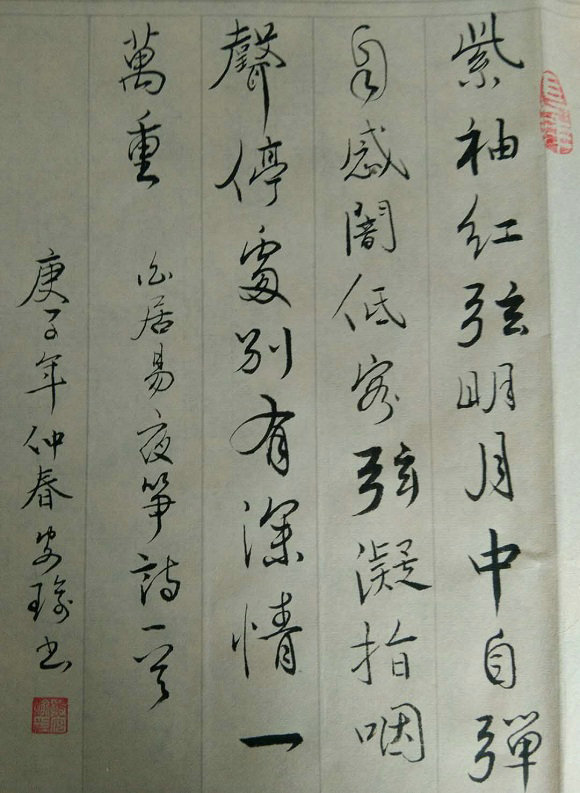 紫袖红弦明月中自弹
自感闇低容弦凝指咽
聲停處别有深情一
萬重
白居易夜筝詩一首
庚子年仲春安瑜书